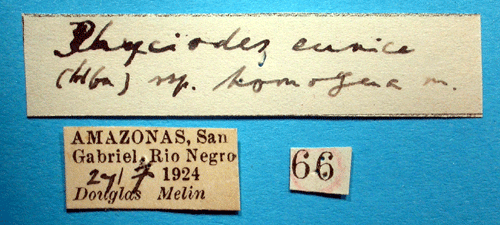 Phyciodes eunice
(Hbn) ssp. homogena m.
AMAZONAS, San
Gabriel, Rio Negro
1924
Douglas Melin
66